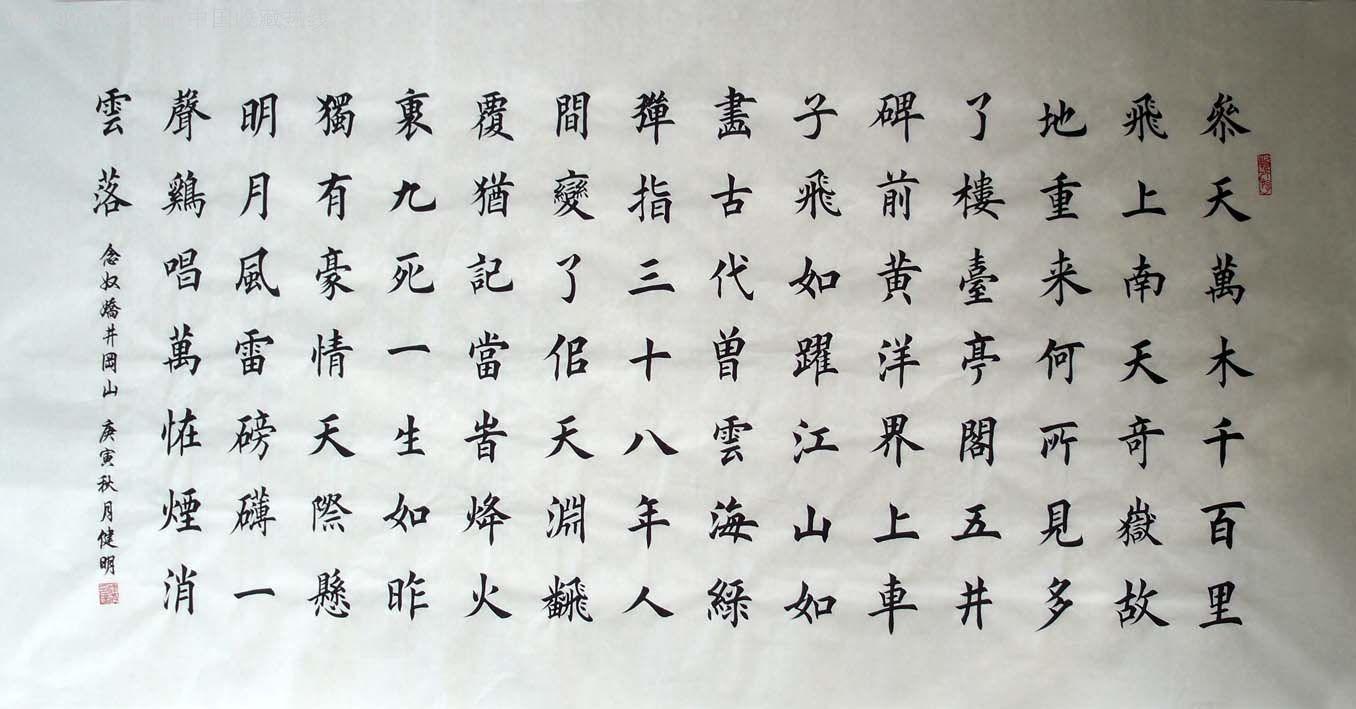 叅天萬木千百里
飛上南天奇嶽故
地重来何所見多
了樓臺亭閣五井
碑前黄洋界上車
子飛如躍江山如
畫古代曽雲海綠
彈指三十八年人
間變了佀天淵飜
覆猶記當旹烽火
裏九死一生如昨
獨有豪情天際懸
明月風雷磅礴一
聲鷄唱萬恠煙消
雲落
念奴嬌井岡山 庚寅秋月健明
中国收藏热线